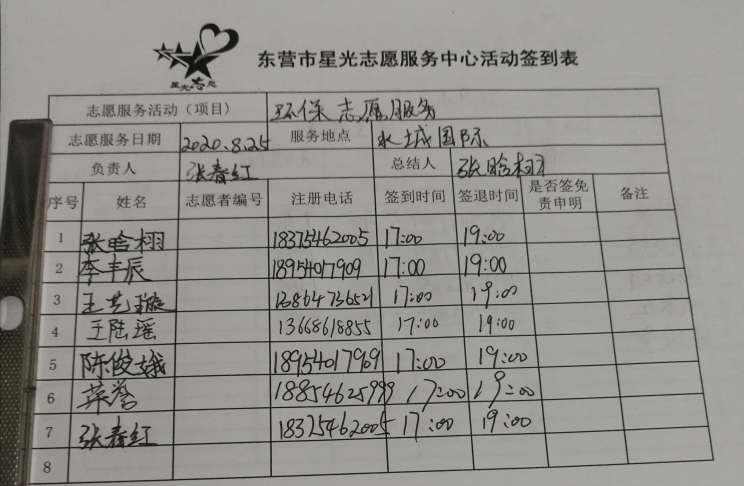 星光志愿
东营市星光志愿服务中心活动签到表
志愿服务活动（项目） 环保志愿服务
志愿服务日期 2020.8.25 服务地点 水城国际
负责人 张春红 总结人 张晗栩
序号 姓名 志愿者编号 注册电话 签到时间 签退时间 是否签免责申明 备注
1 张晗栩 18375462005 17:00 19:00
2 李丰辰 18954017909 17:00 19:00
3 王艺璇 17:00 19:00
4 王陆瑶 13668618855 17:00 19:00
5 陈俊娥 18954017909 17:00 19:00
6 荣誉 18854625999 17:00 19:00
7 张春红 18375462005 17:00 19:00
8